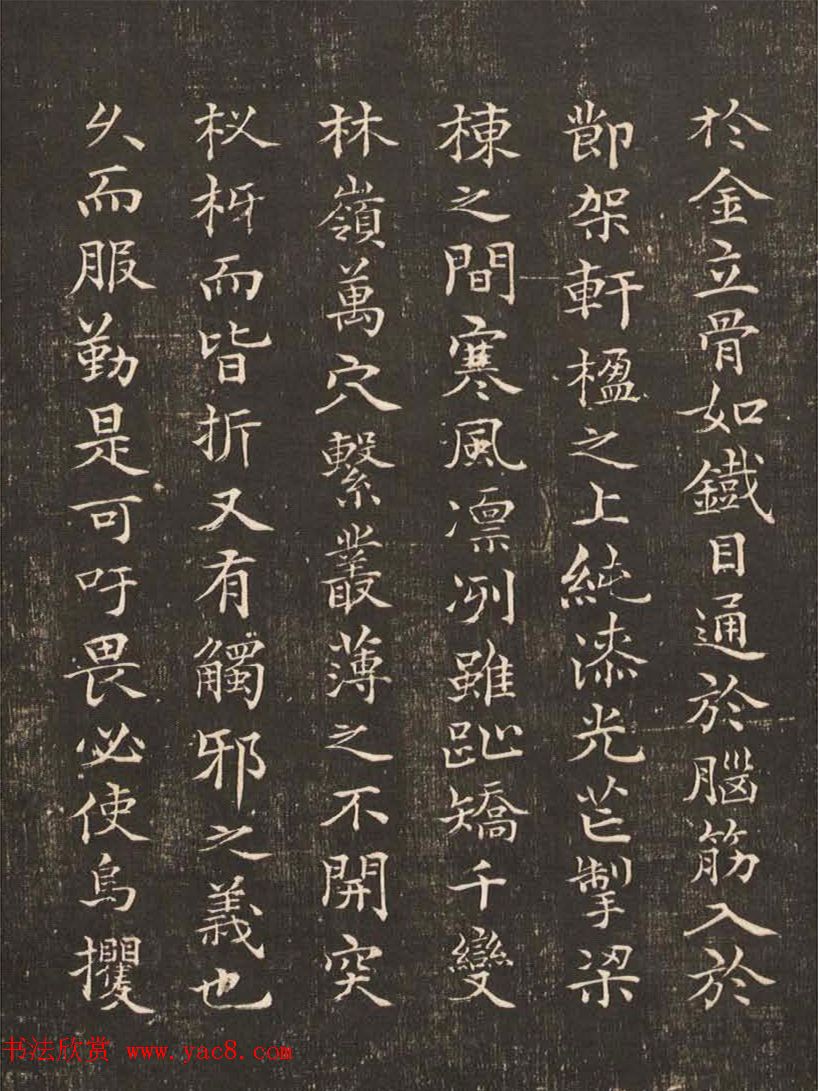 於金立骨如鐵目通於腦筋入於
節架軒楹之上純漆光芒掣梁
棟之間寒風凜冽雖趾矯千變
林嶺萬穴繫叢薄之不開突
杈枒而皆折又有觸邪之義也
久而服勤是可吁畏必使烏攫
书法欣赏 www.yac8.com